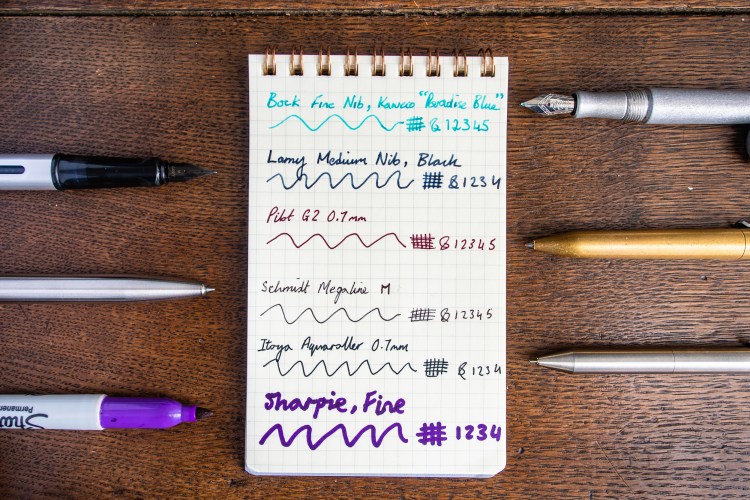 Bock Fine Nib, Kaweco "Paradise Blue"
& 12345
Lamy Medium Nib, Black
& 1234
Pilot G2 0.7mm
& 12345
Schmidt Megaline M
& 12345
Itoya Aquaroller 0.7mm
& 1234
Sharpie, Fine
1234
Permanent